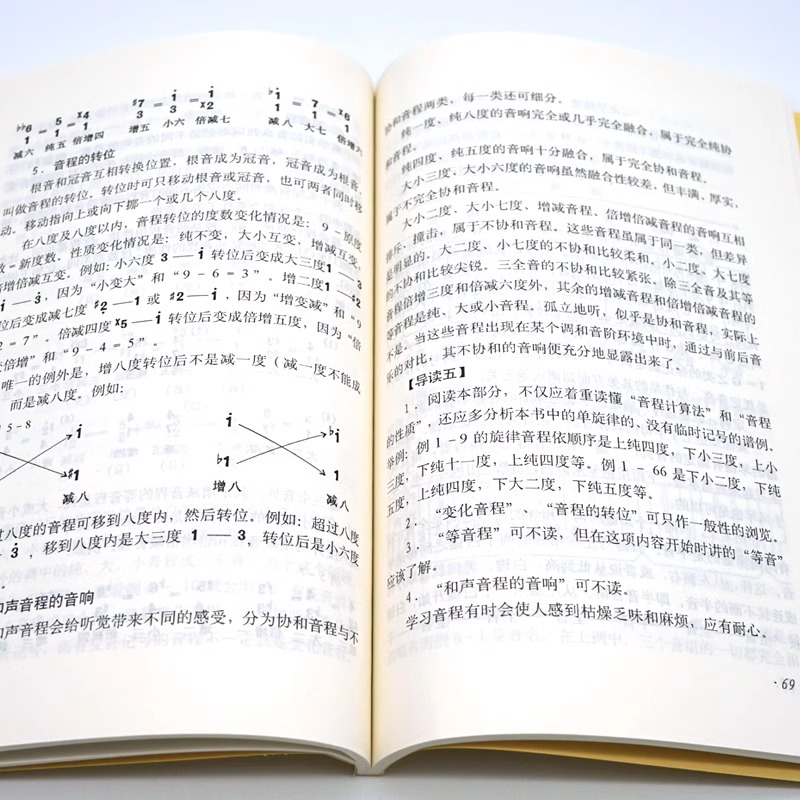 ♭♭6/1 = 5/1 = x4/1
♯7/3 = i/3 = i/x2
♭i/1 = 7/1 = x6/1
减六 纯五 倍增四 增五 小六 倍减七 减八 大七 倍增六
5．音程的转位
根音和冠音互相转换位置，根音成为冠音，冠音成为根音，
叫做音程的转位。转位时可只移动根音或冠音，也可两者同时移
动。移动指向上或向下挪一个或几个八度。
在八度及八度以内，音程转位的度数变化情况是：9－原度
数＝新度数。性质变化情况是：纯不变，大小互变，增减互变，
倍增倍减互变。例如：小六度 3—i 转位后变成大三度 1—3
i—3，因为“小变大”和“9－6＝3”，增二度 1—
位后变成减七度 ♯2—1 或 ♯2—i，因为“增变减”和“9
2＝7”。倍减四度 x5—i 转位后变成倍增五度，因为“倍
变倍增”和“9－4＝5”。
唯一的例外是，增八度转位后不是减一度（减一度不能成
而是减八度。例如：
5-8
i ♭i i
♯1 ♭1 1
减八 增八 减八
过八度的音程可移到八度内，然后转位。例如：超过八度
3，移到八度内是大三度 1—3，转位后是小六度
和声音程的音响
和声音程会给听觉带来不同的感受，分为协和音程与不
协和音程两类，每一类还可细分。
纯一度、纯八度的音响完全或几乎完全融合，属于完全纯协
和音程。
纯四度、纯五度的音响十分融合，属于完全协和音程。
大小三度、大小六度的音响虽然融合性较差，但丰满、厚实，
属于不完全协和音程。
大小二度、大小七度、增减音程、倍增倍减音程的音响互相
排斥、撞击，属于不协和音程。这些音程虽属于同一类，但差异
是明显的，大二度、小七度的不协和比较柔和。小二度、大七度
的不协和比较尖锐。三全音的不协和比较紧张。除三全音及其等
音程倍增三度和倍减六度外，其余的增减音程和倍增倍减音程的
等音程是纯、大或小音程。孤立地听，似乎是协和音程，实际上
不是、当这些音程出现在某个调和音阶环境中时，通过与前后音
乐的对比，其不协和的音响便充分地显露出来了。
【导读五】
1．阅读本部分，不仅应着重读懂“音程计算法”和“音程
的性质”，还应多分析本书中的单旋律的、没有临时记号的谱例。
举例：例 1－9 的旋律音程依顺序是上纯四度，下小三度，上小
三度，下纯十一度，上纯四度等。例 1－66 是下小二度，下纯
五度，上纯四度，下大二度，下纯五度等。
2．“变化音程”、“音程的转位”可只作一般性的浏览。
3．“等音程”可不读，但在这项内容开始时讲的“等音”
应该了解。
4．“和声音程的音响”可不读。
学习音程有时会使人感到枯燥乏味和麻烦，应有耐心。
·69